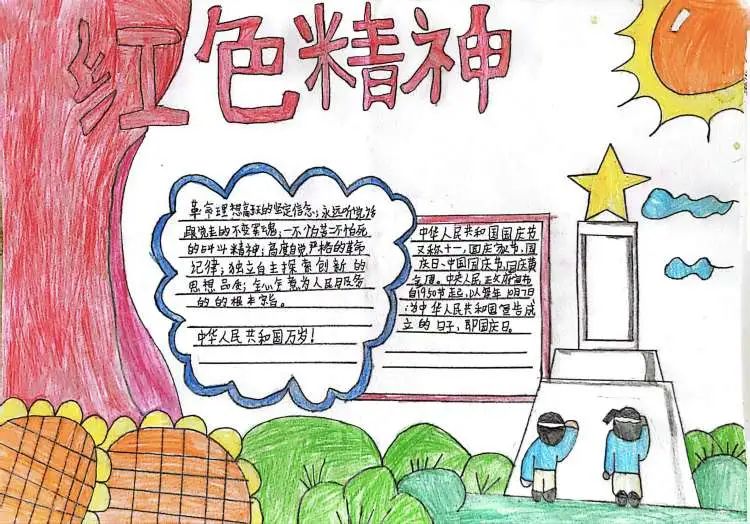 红色精神
革命理想高于的坚定信念;永远听党话
跟党走的不变军魂;一不怕苦二不怕死
的战斗精神;高度自觉严格的革命
纪律;独立自主探索创新的
思想品质;全心全意为人民服务
的的根本宗旨。
中华人民共和国万岁!
中华人民共和国国庆节
又称十一,国庆节,国
庆日、中国国庆节,国庆黄
金周。中央人民政府宣布
自1950年起,以每年10月7日
为中华人民共和国宣告成
立的日子,即国庆日。